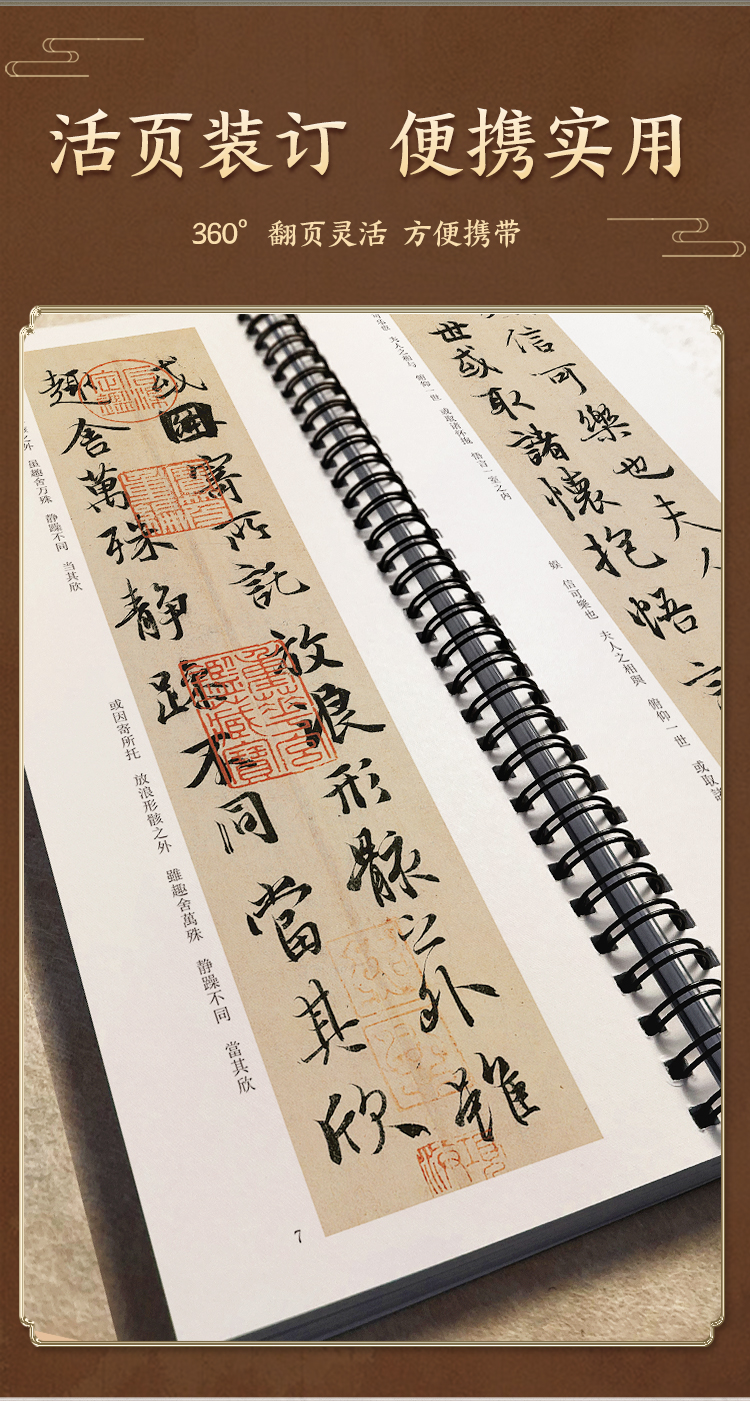 活页装订 便携实用
360° 翻页灵活 方便携带
世或取諸懷抱悟言
信可樂也夫人
或因寄所託放浪形骸之外雖
趣舍萬殊静躁不同當其欣
娱 信可樂也 夫人之相與 俯仰一世 或取諸
夫人之相与 俯仰一世 或取诸怀抱 悟言一室之内
或因寄所托 放浪形骸之外 雖趣舍萬殊 静躁不同 當其欣
之外 虽趣舍万殊 静躁不同 当其欣
7